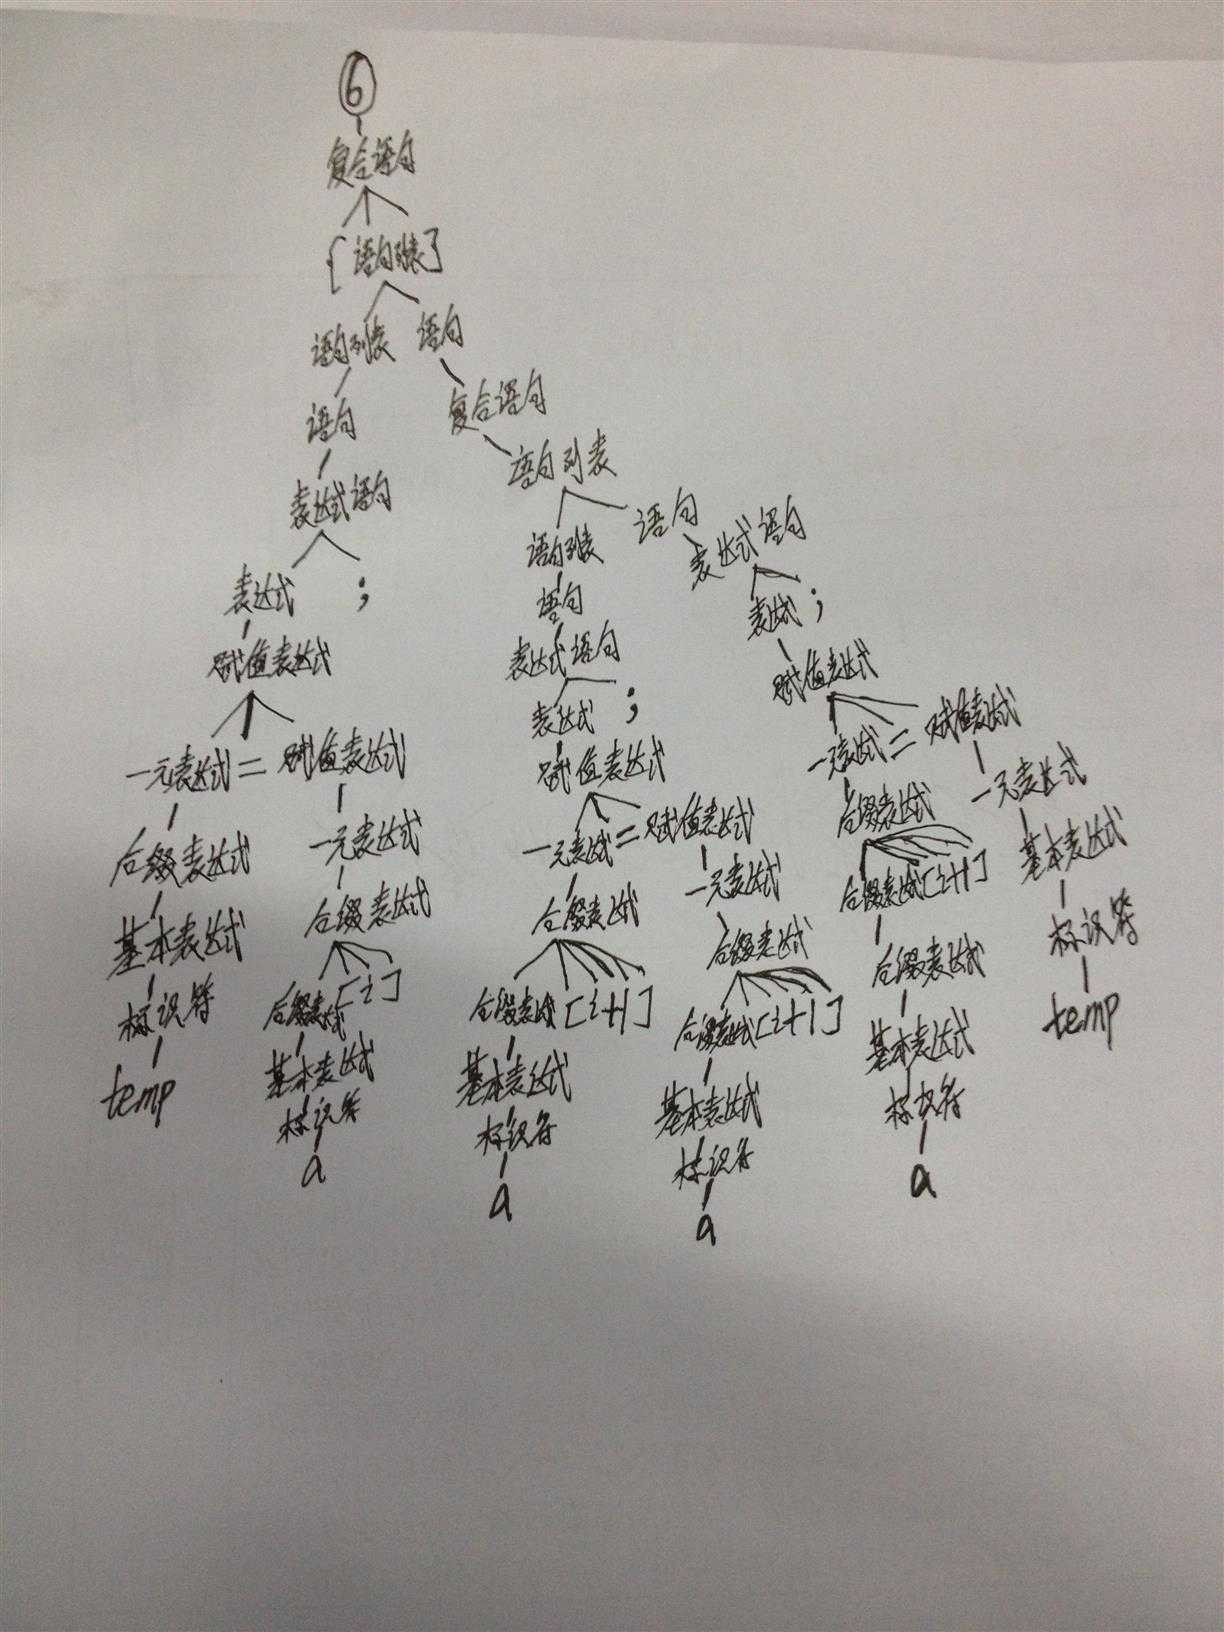 6
复合语句
{ 语句列表 }
语句列表 语句
语句 复合语句
表达式语句 语句列表
表达式 ; 语句列表 语句
赋值表达式 语句 表达式语句
一元表达式 = 赋值表达式 表达式语句 表达式 ;
后缀表达式 一元表达式 表达式 ; 赋值表达式
基本表达式 后缀表达式 赋值表达式 一元表达式 = 赋值表达式
标识符 后缀表达式 [ i ] 一元表达式 = 赋值表达式 后缀表达式 一元表达式
temp 基本表达式 后缀表达式 一元表达式 后缀表达式 [ i + 1 ] 基本表达式
标识符 后缀表达式 [ i + 1 ] 后缀表达式 后缀表达式 标识符
a 基本表达式 后缀表达式 [ i + 1 ] 基本表达式 temp
标识符 基本表达式 标识符
a 标识符 a
a